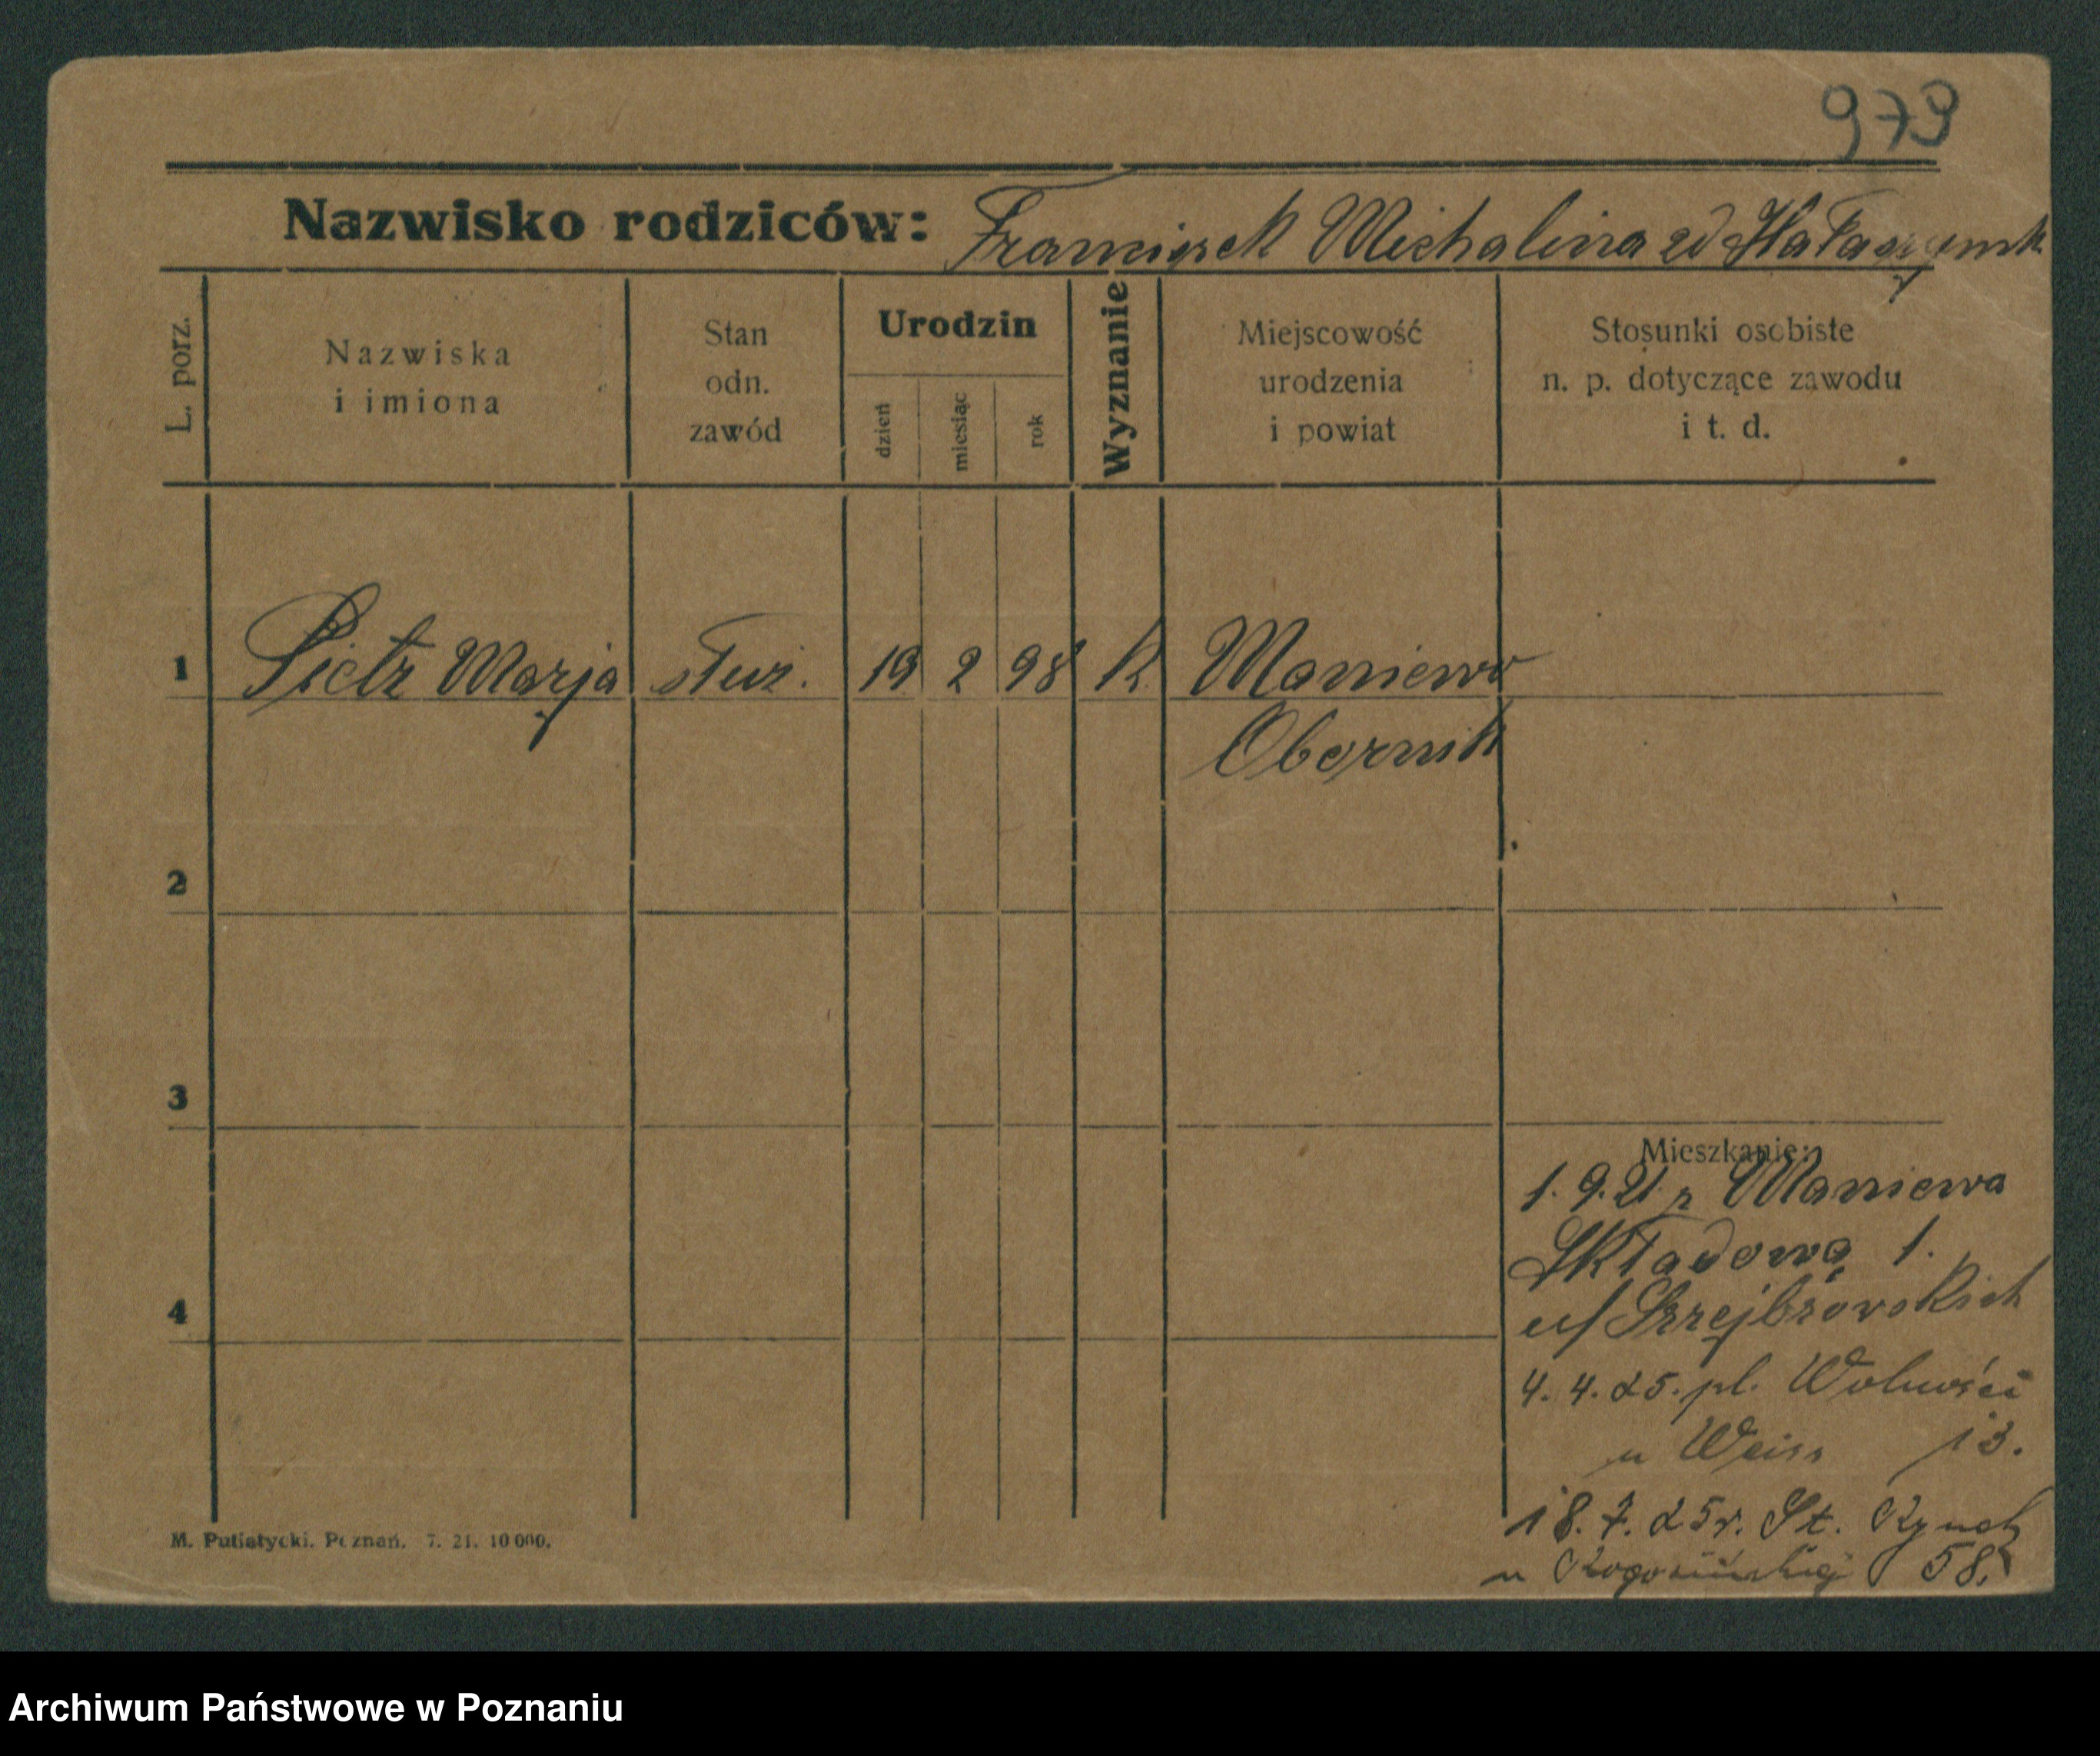 979
Nazwisko rodziców: Franciszek Michalina zd
L. porz.
Nazwiska
i imiona
Stan
odn.
zawód
Urodzin
dzień
miesiąc
rok
Wyznanie
Miejscowość
urodzenia
i powiat
Stosunki osobiste
n. p. dotyczące zawodu
i t. d.
1 Pietz Marja służ. 19 2 98 K Maniewo
Obornik
2
3
4
Mieszkanie:
1. 9. 21 z Maniewa
Składowa 1.
u/
4. 4. 25. pl. Wolności
u Weiss 13.
18. 7. 25 r. St. Rynek
u 58.
M. Putiatycki. Poznań. 7. 21. 10 000.
Archiwum Państwowe w Poznaniu